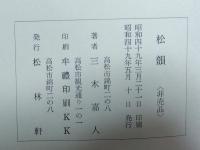 松韻
(非売品)
昭和四十九年三月二十一日 印刷
昭和四十九年五月十日 発行
高松市錦町二の八
著者 三木嘉人
高松市観光通り一の一
印刷 牟禮印刷KK
高松市錦町二の八
発行 松林軒